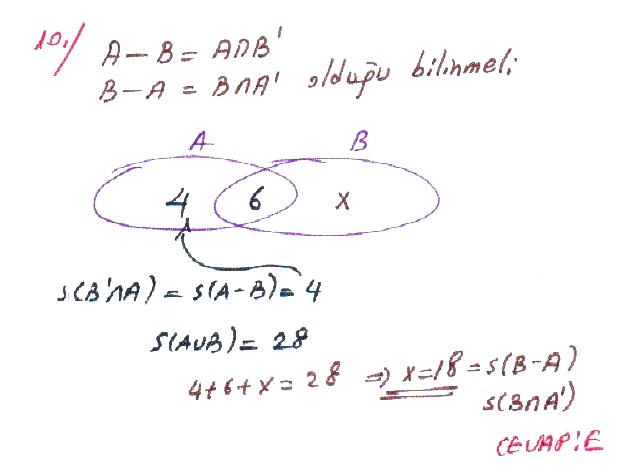 10./ A - B = A∩B'
B - A = B∩A' olduğu bilinmeli
A B
4 6 x
s(B'∩A) = s(A-B) = 4
s(A∪B) = 28
4+6+x = 28 ⇒ x=18 = s(B-A)
s(B∩A')
CEVAP:E